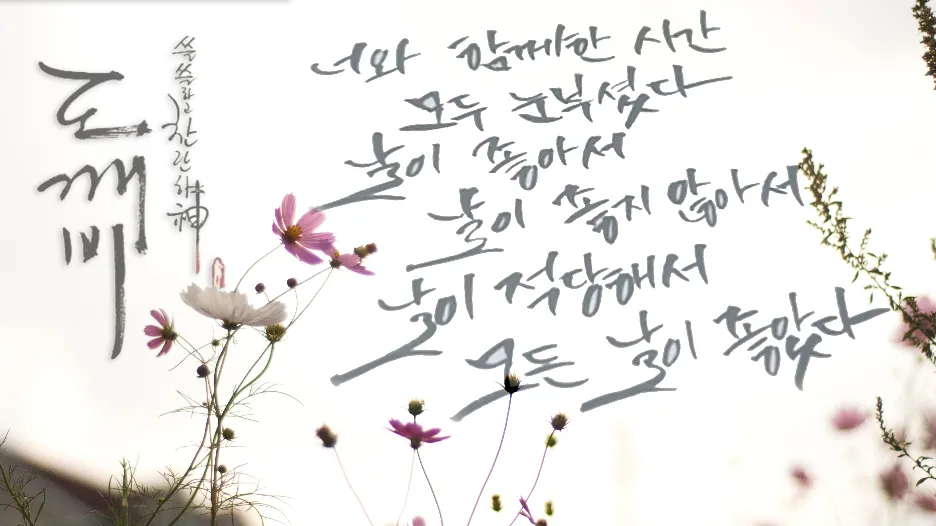 도깨비
쓸쓸하고 찬란하神
너와 함께한 시간
모두 눈부셨다
날이 좋아서
날이 좋지 않아서
날이 적당해서
모든 날이 좋았다